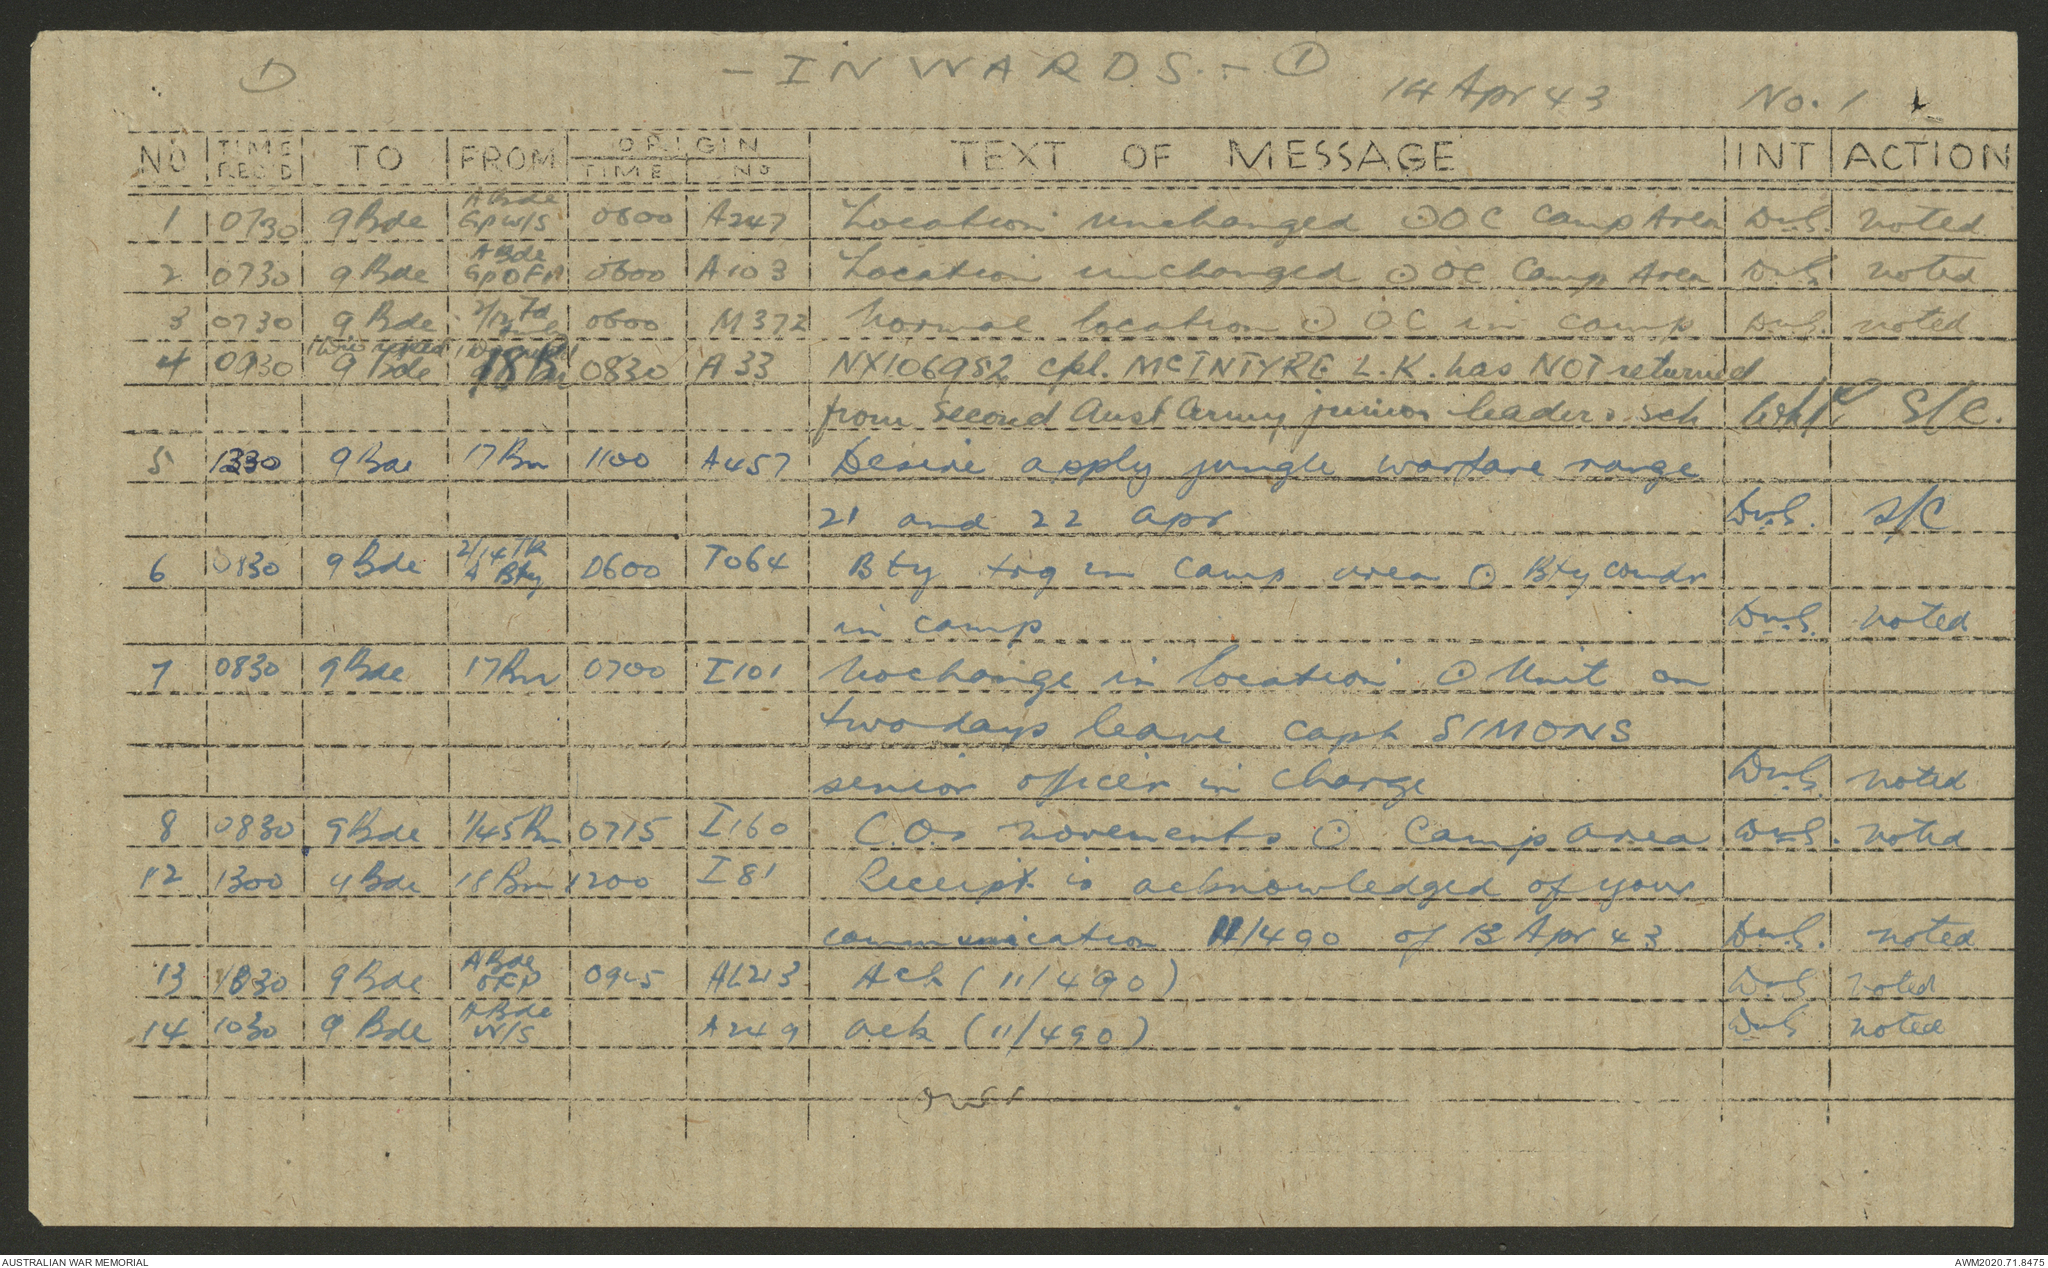 D
- INWARDS. - ①
14 Apr 43 No. 1
NO TIME REC'D TO FROM ORIGIN TIME NO TEXT OF MESSAGE INT ACTION
1 0730 9 Bde A Bde Gp W/S 0600 A247 Location unchanged ⊙ OC Camp Area noted
2 0730 9 Bde A Bde Gp OFP 0600 A103 Location unchanged ⊙ OC Camp Area noted
3 0730 9 Bde 0600 M372 Normal location ⊙ OC in camp noted
4 0930 9 Bde 18 Bn 0830 A33 NX106952 cpl. MCINTYRE L.K. has NOT returned
from Second Aust Army junior leaders sch S/C.
5 1330 9 Bde 17 Bn 1100 A457 Desire apply jungle warfare range
21 and 22 Apr S/C
6 0830 9 Bde A Bty 0600 T064 Bty trg in camp area ⊙ Bty comdr
in camp noted
7 0830 9 Bde 17 Bn 0700 I101 No change in location ⊙ Unit on
two days leave Capt SIMONS
senior officer in charge noted
8 0830 9 Bde 1/45 Bn 0715 I160 C.O.s movements ⊙ Camp area noted
12 1300 9 Bde 18 Bn 1200 I81 Receipt is acknowledged of your
communication 11/490 of 13 Apr 43 noted
13 1030 9 Bde A Bde OFP 0945 AL213 Ack (11/490) noted
14 1030 9 Bde A Bde W/S A249 ack (11/490) noted
over
AUSTRALIAN WAR MEMORIAL AWM2020.71.8475